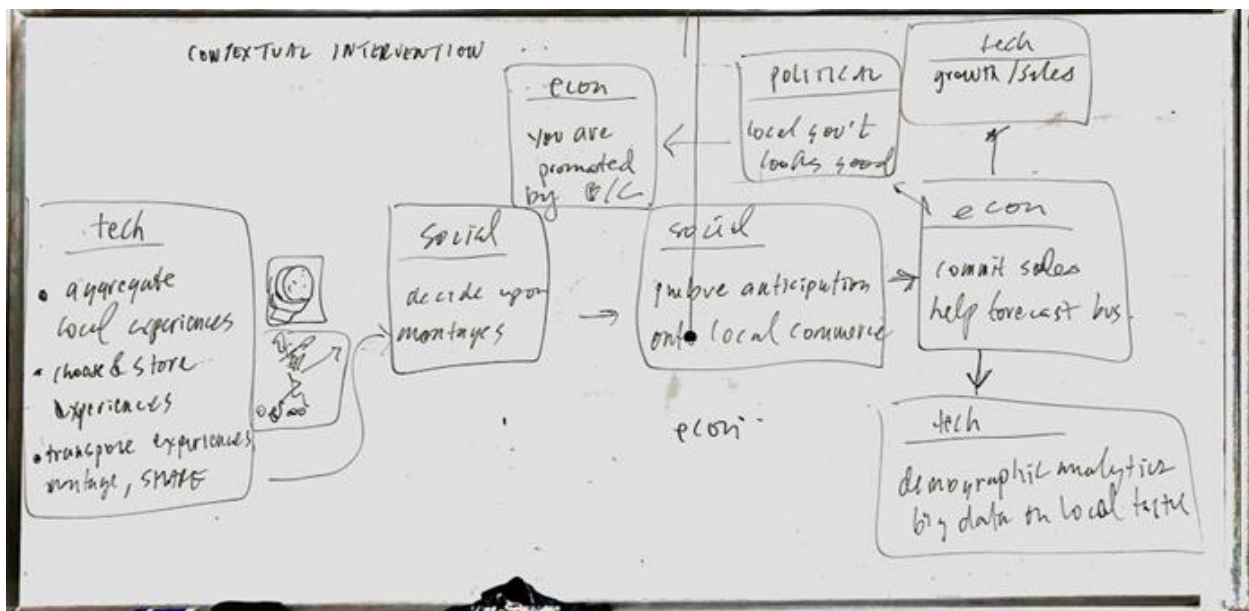 CONTEXTUAL INTERVENTION
tech
• aggregate
local experiences
• choose & store
experiences
• transpose experiences,
montage, SHARE
social
decide upon
montages
econ
you are
promoted
by
social
anticipation
onto local commerce
econ
POLITICAL
local gov't
looks good
tech
growth/sales
econ
commit sales
help forecast bus.
tech
demographic analytics
big data on local taste